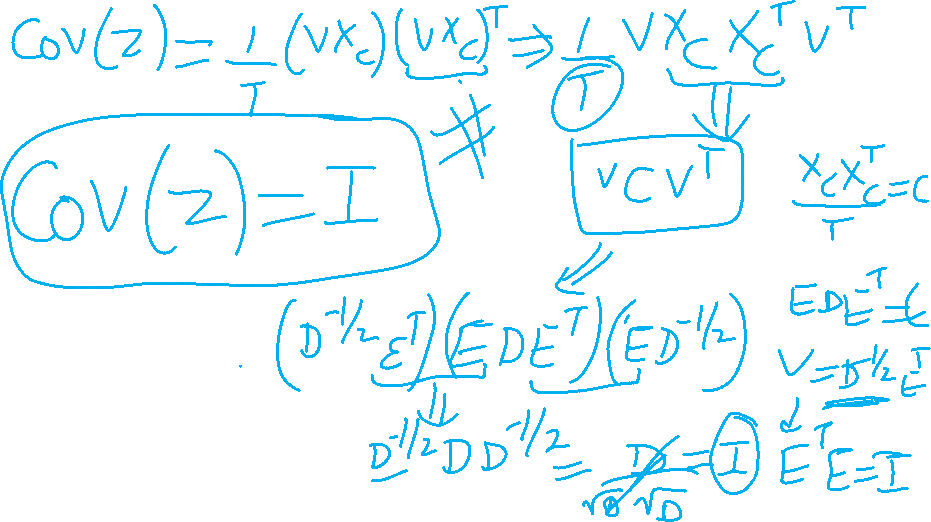 Cov(Z) = 1/T (VX_C)(VX_C)^T ⇒ 1/T V X_C X_C^T V^T
Cov(Z) = I
VCV^T
X_C X_C^T / T = C
(D^-1/2 E^T)(E D E^T)(E D^-1/2)
E D E^T = C
V = D^-1/2 E^T
D^-1/2 D D^-1/2 = D / √D √D = I
E^T E = I